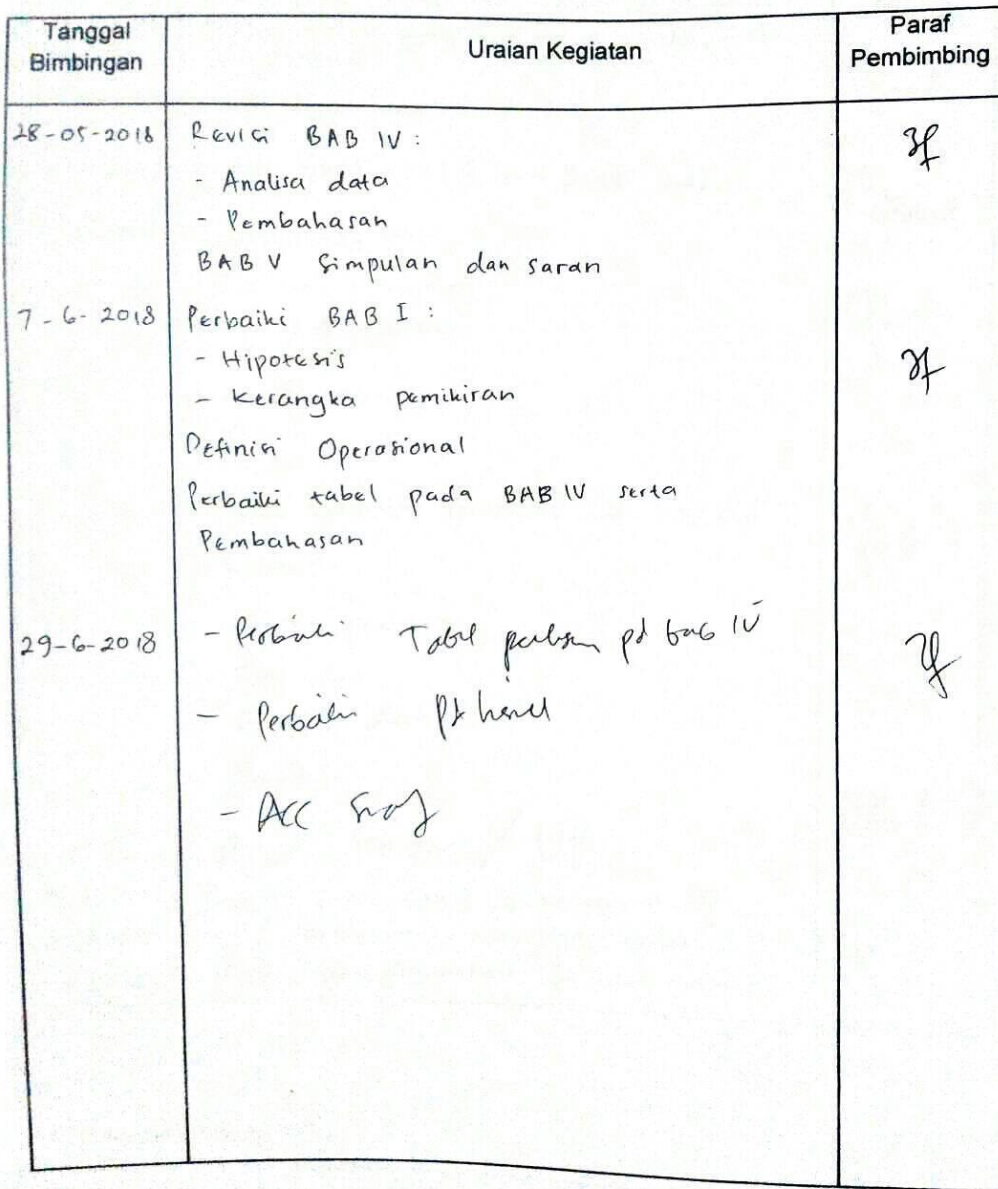 Tanggal Bimbingan
Uraian Kegiatan
Paraf Pembimbing
28-05-2018
Revisi BAB IV :
- Analisa data
- Pembahasan
BAB V Simpulan dan saran
7-6-2018
Perbaiki BAB I :
- Hipotesis
- Kerangka pemikiran
Definisi Operasional
Perbaiki tabel pada BAB IV serta
Pembahasan
29-6-2018
- Perbaiki Tabel pd bab IV
- Perbaiki
- ACC